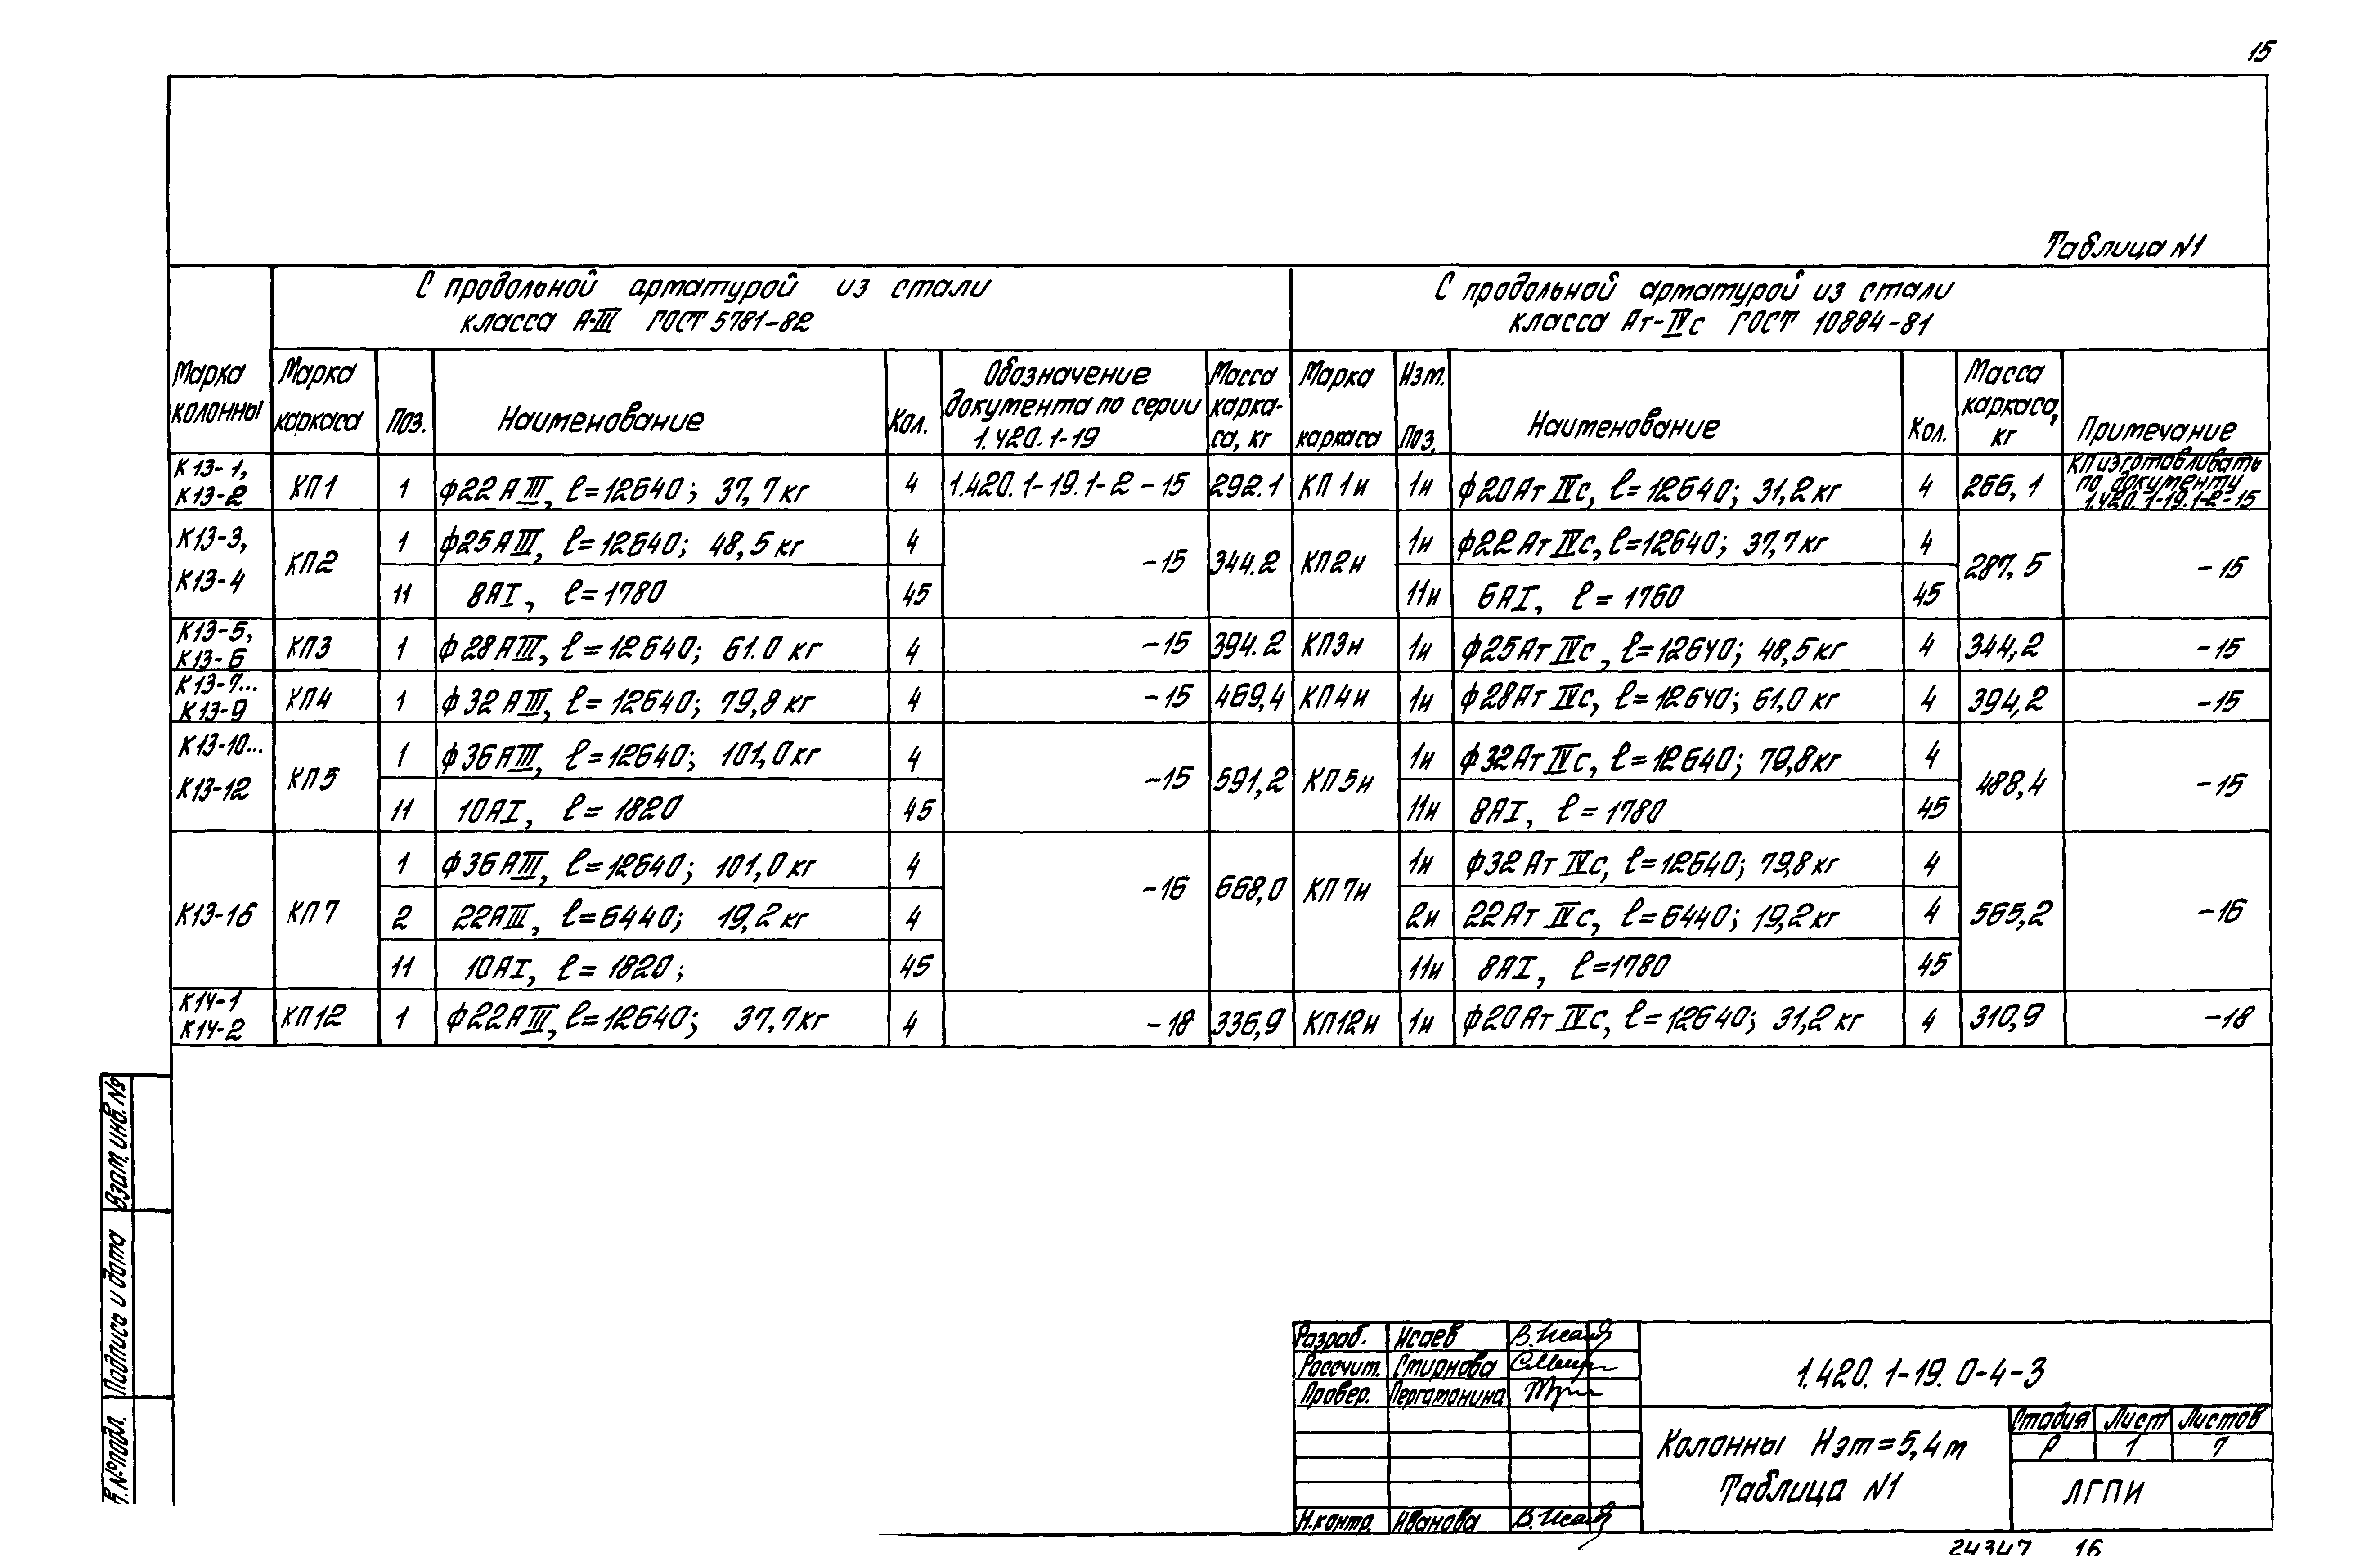 15
Таблица N1
Марка колонны
С продольной арматурой из стали
класса А-III ГОСТ 5781-82
С продольной арматурой из стали
класса Ат-IVс ГОСТ 10884-81
Марка каркаса
Поз.
Наименование
Кол.
Обозначение документа по серии 1.420.1-19
Масса карка-са, кг
Марка каркаса
Изм. Поз.
Наименование
Кол.
Масса каркаса, кг
Примечание
К13-1, К13-2 КП1 1 ф22АIII, ℓ=12640; 37,7кг 4 1.420.1-19.1-2-15 292.1 КП1и 1и ф20АтIVс, ℓ=12640; 31,2кг 4 266,1 КП изготавливать по документу 1.420.1-19.1-2-15
К13-3, К13-4 КП2 1 ф25АIII, ℓ=12640; 48,5кг 4 -15 344.2 КП2и 1и ф22АтIVс, ℓ=12640; 37,7кг 4 287,5 -15
11 8АI, ℓ=1780 45 11и 6АI, ℓ=1760 45
К13-5, К13-6 КП3 1 ф28АIII, ℓ=12640; 61.0кг 4 -15 394.2 КП3и 1и ф25АтIVс, ℓ=12640; 48,5кг 4 344,2 -15
К13-7... К13-9 КП4 1 ф32АIII, ℓ=12640; 79,8кг 4 -15 469,4 КП4и 1и ф28АтIVс, ℓ=12640; 61,0кг 4 394,2 -15
К13-10... К13-12 КП5 1 ф36АIII, ℓ=12640; 101,0кг 4 -15 591,2 КП5и 1и ф32АтIVс, ℓ=12640; 79,8кг 4 488,4 -15
11 10АI, ℓ=1820 45 11и 8АI, ℓ=1780 45
К13-16 КП7 1 ф36АIII, ℓ=12640; 101,0кг 4 -16 668,0 КП7и 1и ф32АтIVс, ℓ=12640; 79,8кг 4 565,2 -16
2 22АIII, ℓ=6440; 19,2кг 4 2и 22АтIVс, ℓ=6440; 19,2кг 4
11 10АI, ℓ=1820; 45 11и 8АI, ℓ=1780 45
К14-1 К14-2 КП12 1 ф22АIII, ℓ=12640; 37,7кг 4 -18 336,9 КП12и 1и ф20АтIVс, ℓ=12640; 31,2кг 4 310,9 -18
Взам. инв. №
Подпись и дата
№ подл.
Разраб. Исаев В.Исаев
Рассчит. Смирнова
Провер. Пергамонина
Н.контр. Иванова
1.420.1-19.0-4-3
Колонны Нэт=5,4м
Таблица N1
Стадия Лист Листов
Р 1 7
ЛГПИ
24347 16